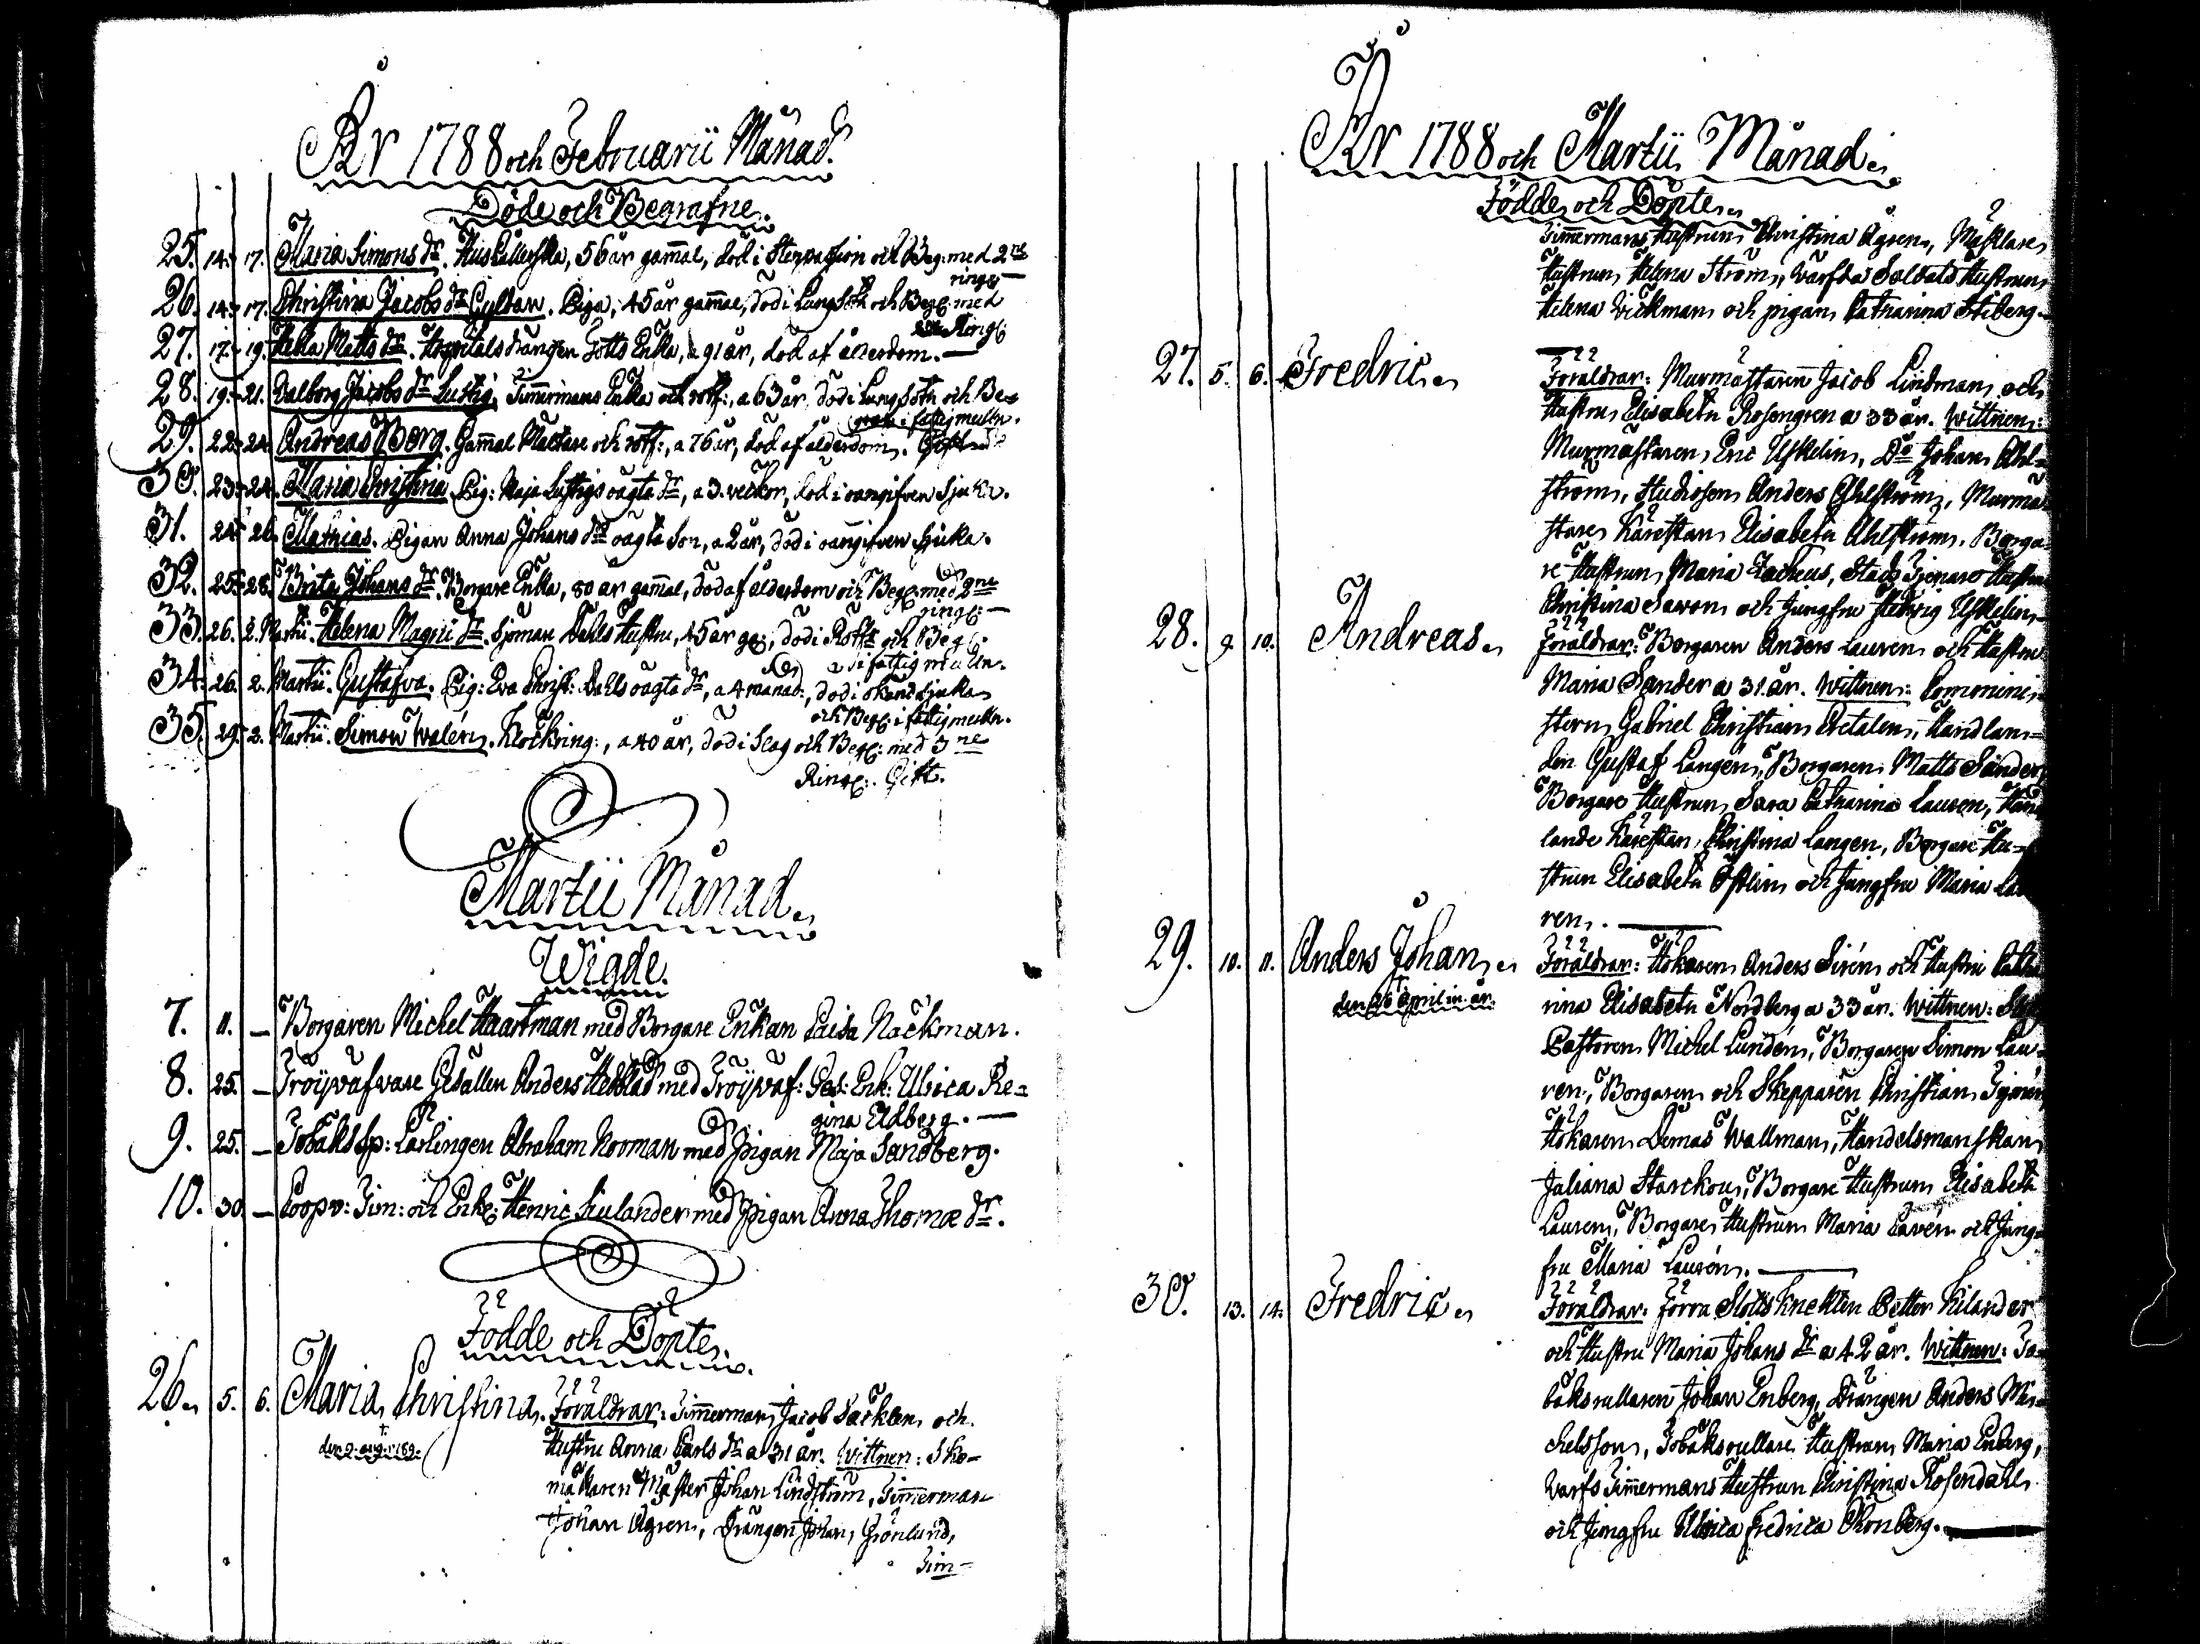 År 1788 och Februarii Månad.
Döde och Begrafne.
25. 14. 17. Maria Simons dr. Hushållerska, 56 år gammal, död i och Beg. med 2ne
ringr
26. 14. 17. Christina Jacobs dr Cyldan. Piga, 45 år gammal, död i Lungsot och Begr. med
Ringr
27. 17. 19. Matts dr. Hospitals drängen Enka, a 91 år, död af ålderdom.
28. 19. 21. Valborg Jacobs dr Lustig, Timmermans Enka och rotf:, a 63 år, död i Lungsoth och Be=
i fattigmulln.
29. 22. 24. Andreas Berg. Gammal Mäklare och rotf:, a 76 år, död af ålderdom.
30. 23. 24. Maria Christina Pig: Maja Lustigs oägta dr, a 3. veckor, död i oangifven sjuka.
31. 24. 26. Mathias. Pigan Anna Johans dr oägta Son, a 2 år, död i oangifven sjuka.
32. 25. 28. Brita Johans dr. Borgare Enka, 80 år gammal, död af ålderdom och Begr. med 2ne
ringr.
33. 26. 2. Martii. Helena Magni dr. Sjöman Dahls Hustru, 45 år g:, död i och Begr.
i fattig mulln.
34. 26. 2. Martii. Gustafva. Pig: Eva Christ: Dahls oägta dr, a 4 månad:, död i okänd sjuka
och Begr: i fattigmulln.
35. 29. 2. Martii. Simon Walén. Klockring:, a 40 år, död i Slag och Begr: med 3ne
Ringr: Gift.
Martii Månad.
Wigde.
7. 11. — Borgaren Michel Haartman med Borgare Enkan Caisa Näckman.
8. 25. — Tröijväfvare Gesällen Anders Hedblad med Tröijväf: Ges: Enk: Ulrica Re=
gina Eldberg.
9. 25. — Tobaks Sp: Lärlingen Abraham Norman med Pigan Maja Sandberg.
10. 30. — Coopv: Tim: och Enkl: Henric Siulander med Pigan Anna Thomæ dr.
Födde och Döpte.
26. 5. 6. Maria Christina. Föräldrar: Timmerman Jacob Säcklen och
† den 9. aug. 1789. Hustru Anna Carls dr a 31 år. Wittnen: Sko=
makaren Mäster Johan Lindström, Timmerman
Johan Ågren, Drängen Johan Grönlund,
Tim=
År 1788 och Martii Månad.
Födde och Döpte.
Timmermans Hustrun Christina Ågren, Mäklare
Hustrun Helena Ström, Värfda Soldats Hustrun
Helena Wickman och pigan Catharina Stiberg.
27. 5. 6. Fredric. Föräldrar: Murmästaren Jacob Lindman och
Hustru Elisabeth Rosengren a 33 år. Wittnen:
Murmästaren Eric Uskelin, Do Johan Ahl=
ström, Studiosen Anders Ahlström, Murmä=
stare Kärestan Elisabeth Ahlström, Borga=
re Hustrun Maria Zacheus, Stads Tjenare Hustru
Christina Savon och Jungfru Hedvig Uskelin.
28. 9. 10. Andreas. Föräldrar: Borgaren Anders Lauren och Hustru
Maria Sander a 31. år. Wittnen: Comonini=
stern Gabriel Christian Pretalen, Handlan=
den Gustaf Langén, Borgaren Matts Sander,
Borgare Hustrun Sara Catharina Lauren, Hand
lande Kärestan Christina Langen, Borgare Hu=
strun Elisabeth Östlin och Jungfru Maria Lau
ren.
29. 10. 11. Anders Johan. Föräldrar: Hökaren Anders Sirén och Hustru Catha
† den 26 April in. år. rina Elisabeth Nordberg a 33 år. Wittnen:
Pastoren Michel Lundén, Borgaren Simon Lau=
ren, Borgaren och Skepparen Christian
Hökaren Demas Wallman, Handelsmanskan
Juliana Starckou, Borgare Hustrun Elisabeth
Lauren, Borgare Hustrun Maria Cavén och Jung=
fru Maria Laurén.
30. 13. 14. Fredric. Föräldrar: förra Slotts Knekten Petter Kilander
och Hustru Maria Johans dr a 42 år. Wittnen: To=
baksrullaren Johan Enberg, Drängen Anders Mi=
chelsson, Tobaksrullare Hustrun Maria Enberg,
Varfs Timmermans Hustrun Christina Rosendahl
och Jungfru Ulrica Fredrica Ekonberg.